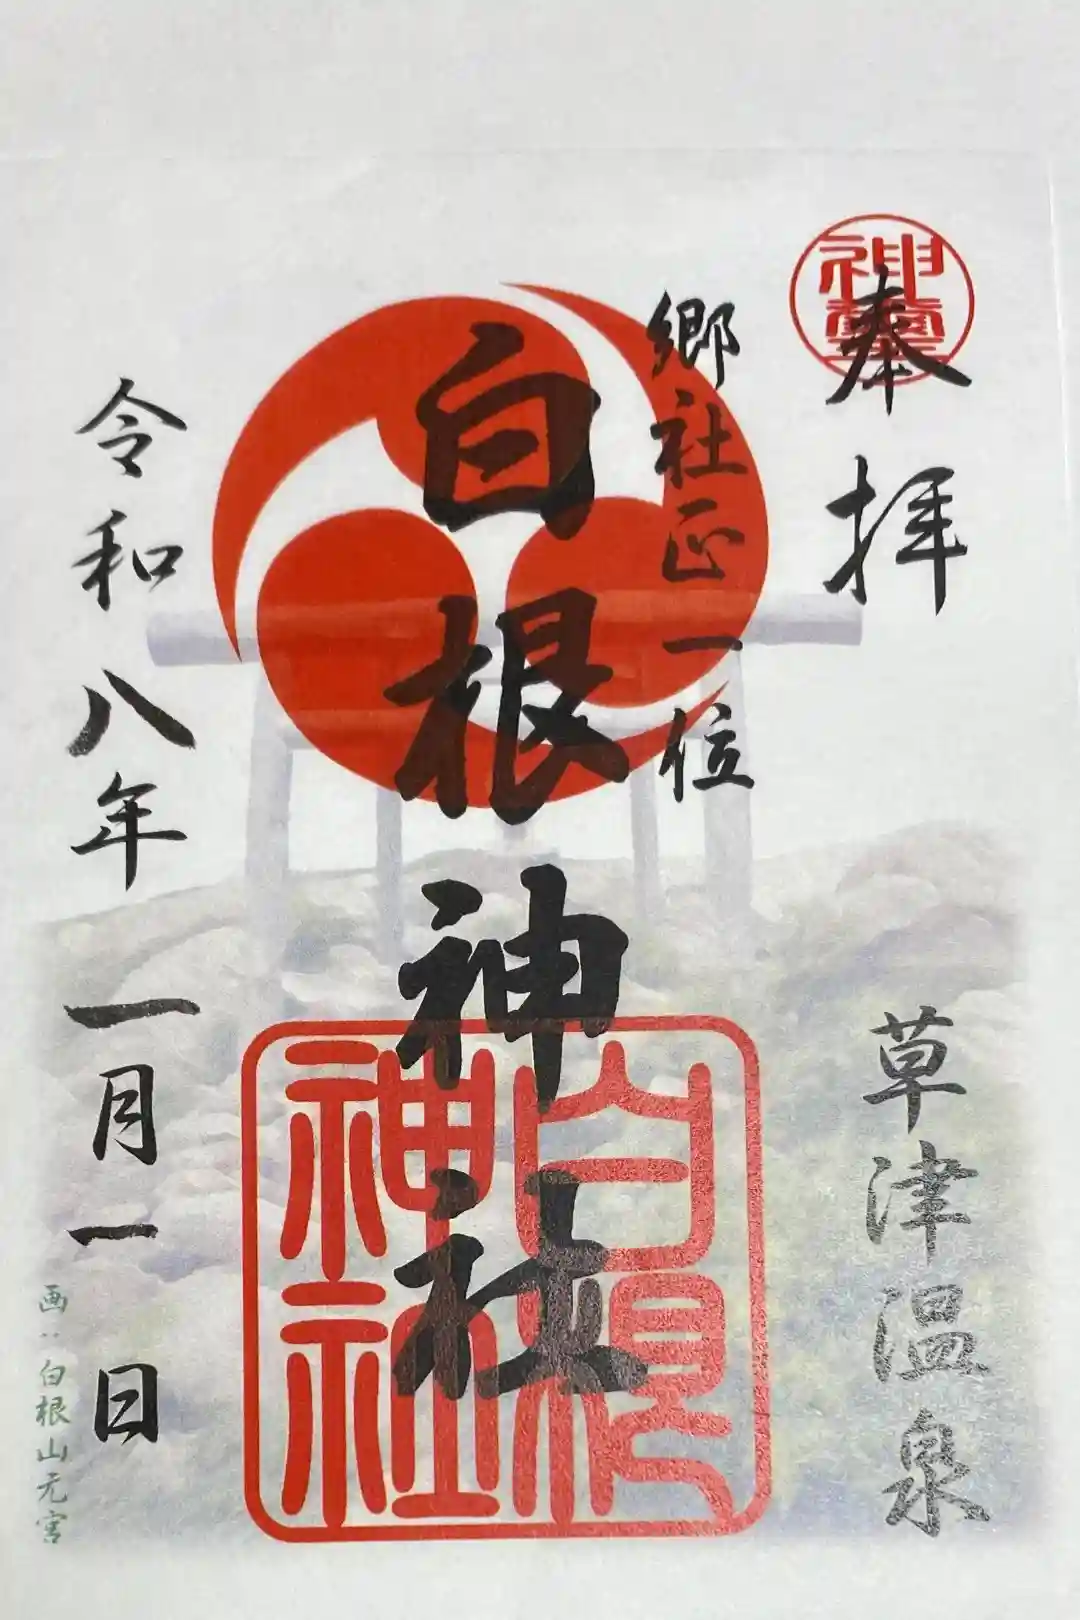 奉拝
神璽
草津温泉
郷社正一位
白根神社
白根
神社
令和八年一月一日
画:白根山元宮